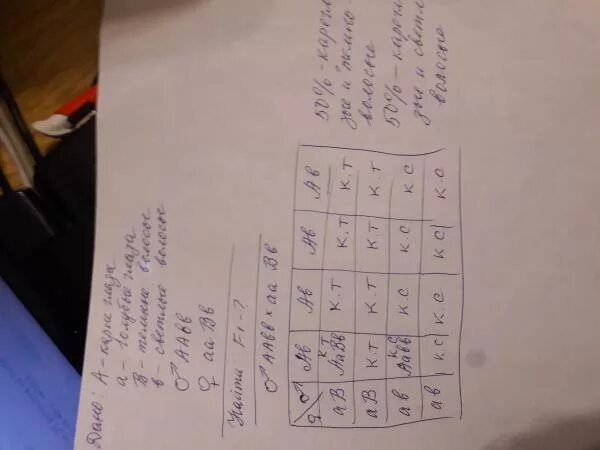 Дано: А - карие глаза
а - голубые глаза
В - темные волосы
в - светлые волосы
♂ ААвв
♀ ааВв
Найти: F1 - ?
♂ ААвв × ааВв
♀ ♂ Ав Ав Ав Ав
аВ к т АаВв к.т к.т к.т
аВ к.т к.т к.т к.т
ав к с Аавв к.с к.с к.с
ав к.с к.с к.с к.с
50% - карегл
зые и темно-
волосые
50% - карегл
зые и светл
волосые